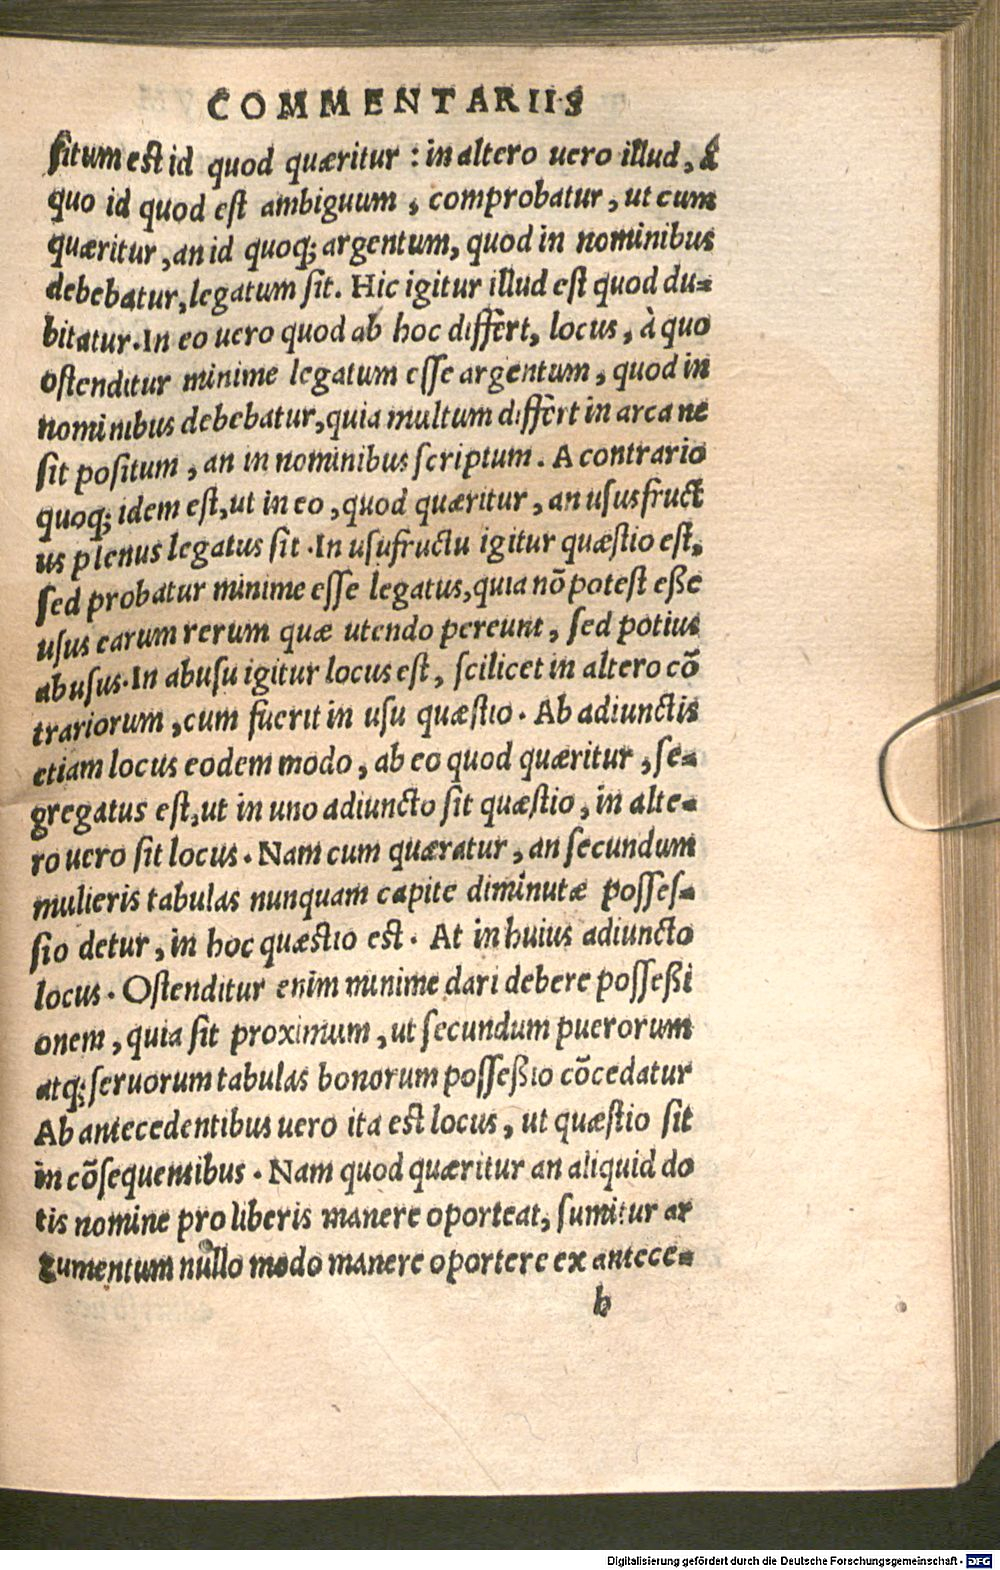 COMMENTARIIS
situm est id quod quæritur : in altero uero illud, à
quo id quod est ambiguum , comprobatur , ut cum
quæritur , an id quoq; argentum, quod in nominibus
debebatur, legatum sit. Hic igitur illud est quod du-
bitatur. In eo uero quod ab hoc differt, locus, à quo
ostenditur minime legatum esse argentum, quod in
nominibus debebatur, quia multum differt in arca ne
sit positum , an in nominibus scriptum. A contrario
quoq; idem est, ut in eo , quod quæritur , an ususfruct
us plenus legatus sit . In usufructu igitur quæstio est,
sed probatur minime esse legatus, quia nõ potest eße
usus earum rerum quæ utendo pereunt, sed potius
abusus. In abusu igitur locus est, scilicet in altero cõ
trariorum , cum fuerit in usu quæstio . Ab adiunctis
etiam locus eodem modo, ab eo quod quæritur , se-
gregatus est, ut in uno adiuncto sit quæstio, in alte-
ro uero sit locus . Nam cum quæratur , an secundum
mulieris tabulas nunquam capite diminutæ posses-
sio detur, in hoc quæstio est . At in huius adiuncto
locus . Ostenditur enim minime dari debere posseßi
onem , quia sit proximum , ut secundum puerorum
atq; seruorum tabulas bonorum posseßio cõcedatur
Ab antecedentibus uero ita est locus, ut quæstio sit
in cõsequentibus . Nam quod quæritur an aliquid do
tis nomine pro liberis manere oporteat, sumitur ar
gumentum nullo modo manere oportere ex antece-
b
Digitalisierung gefördert durch die Deutsche Forschungsgemeinschaft - DFG